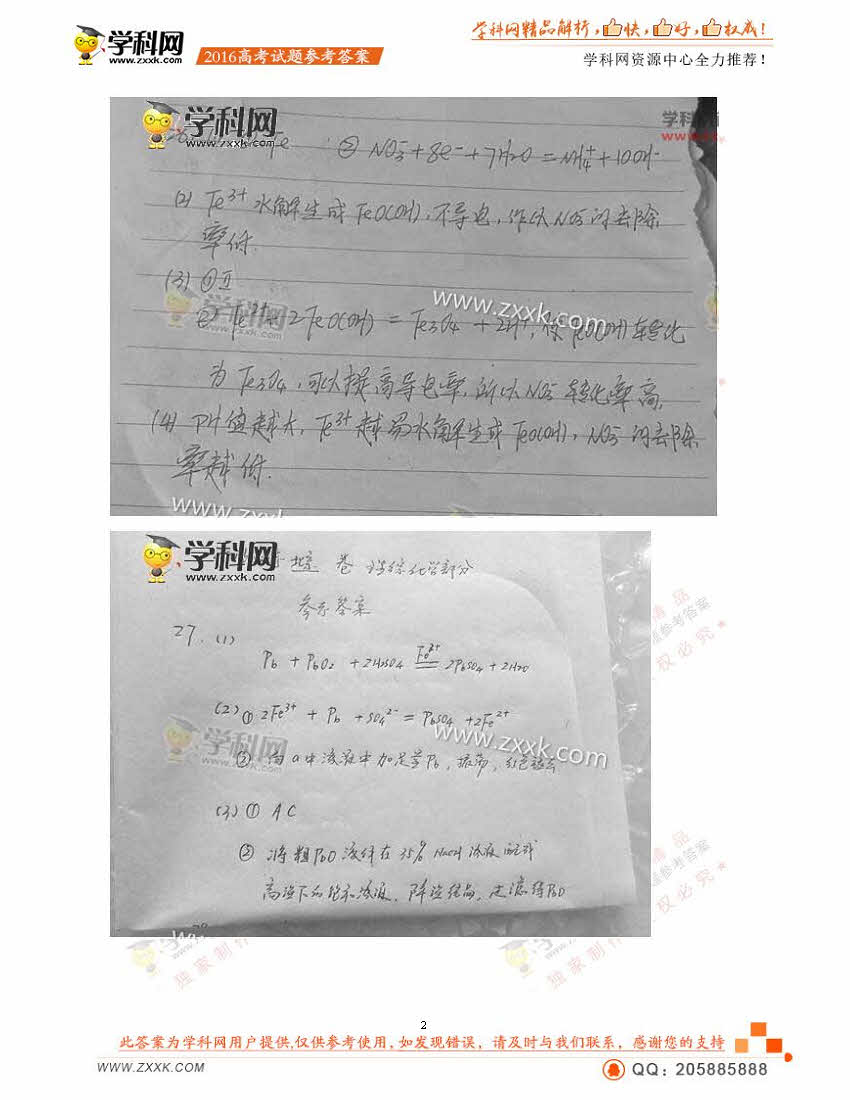 学科网
www.zxxk.com
2016高考试题参考答案
学科网精品解析,快,好,权威!
学科网资源中心全力推荐!
学科网
www.zxxk.com
学科网
www.z
Fe ② NO₃⁻+8e⁻+7H₂O=NH₄⁺+10OH⁻
(2) Fe³⁺水解生成FeO(OH),不导电,所以NO₃⁻的去除
率低.
(3) ①Ⅱ
学科网
www.zxxk.com
www.zxxk.com
② Fe²⁺+2FeO(OH)=Fe₃O₄+2H⁺,使FeO(OH)转化
为Fe₃O₄,可以提高导电率,所以NO₃⁻转化率高.
(4) PH值越大,Fe³⁺越易水解生成FeO(OH),NO₃⁻的去除
率越低.
www.zxxk
学科网
www.zxxk.com
北京 卷 理综化学部分
参考答案
27. (1)
Pb + PbO₂ + 2H₂SO₄ Fe²⁺ = 2PbSO₄ + 2H₂O
(2) ① 2Fe³⁺ + Pb + SO₄²⁻ = PbSO₄ + 2Fe²⁺
学科网
www.zxxk.com
www.zxxk.com
② 向a中溶液中加足量Pb,振荡,红色褪去
(3) ① A C
② 将粗PbO溶解在35% NaOH溶液
高温下 饱和溶液,降温结晶,过滤得PbO
独家制作
独家制作
2
此答案为学科网用户提供,仅供参考使用,如发现错误,请及时与我们联系,感谢您的支持
WWW.ZXXK.COM
QQ:205885888